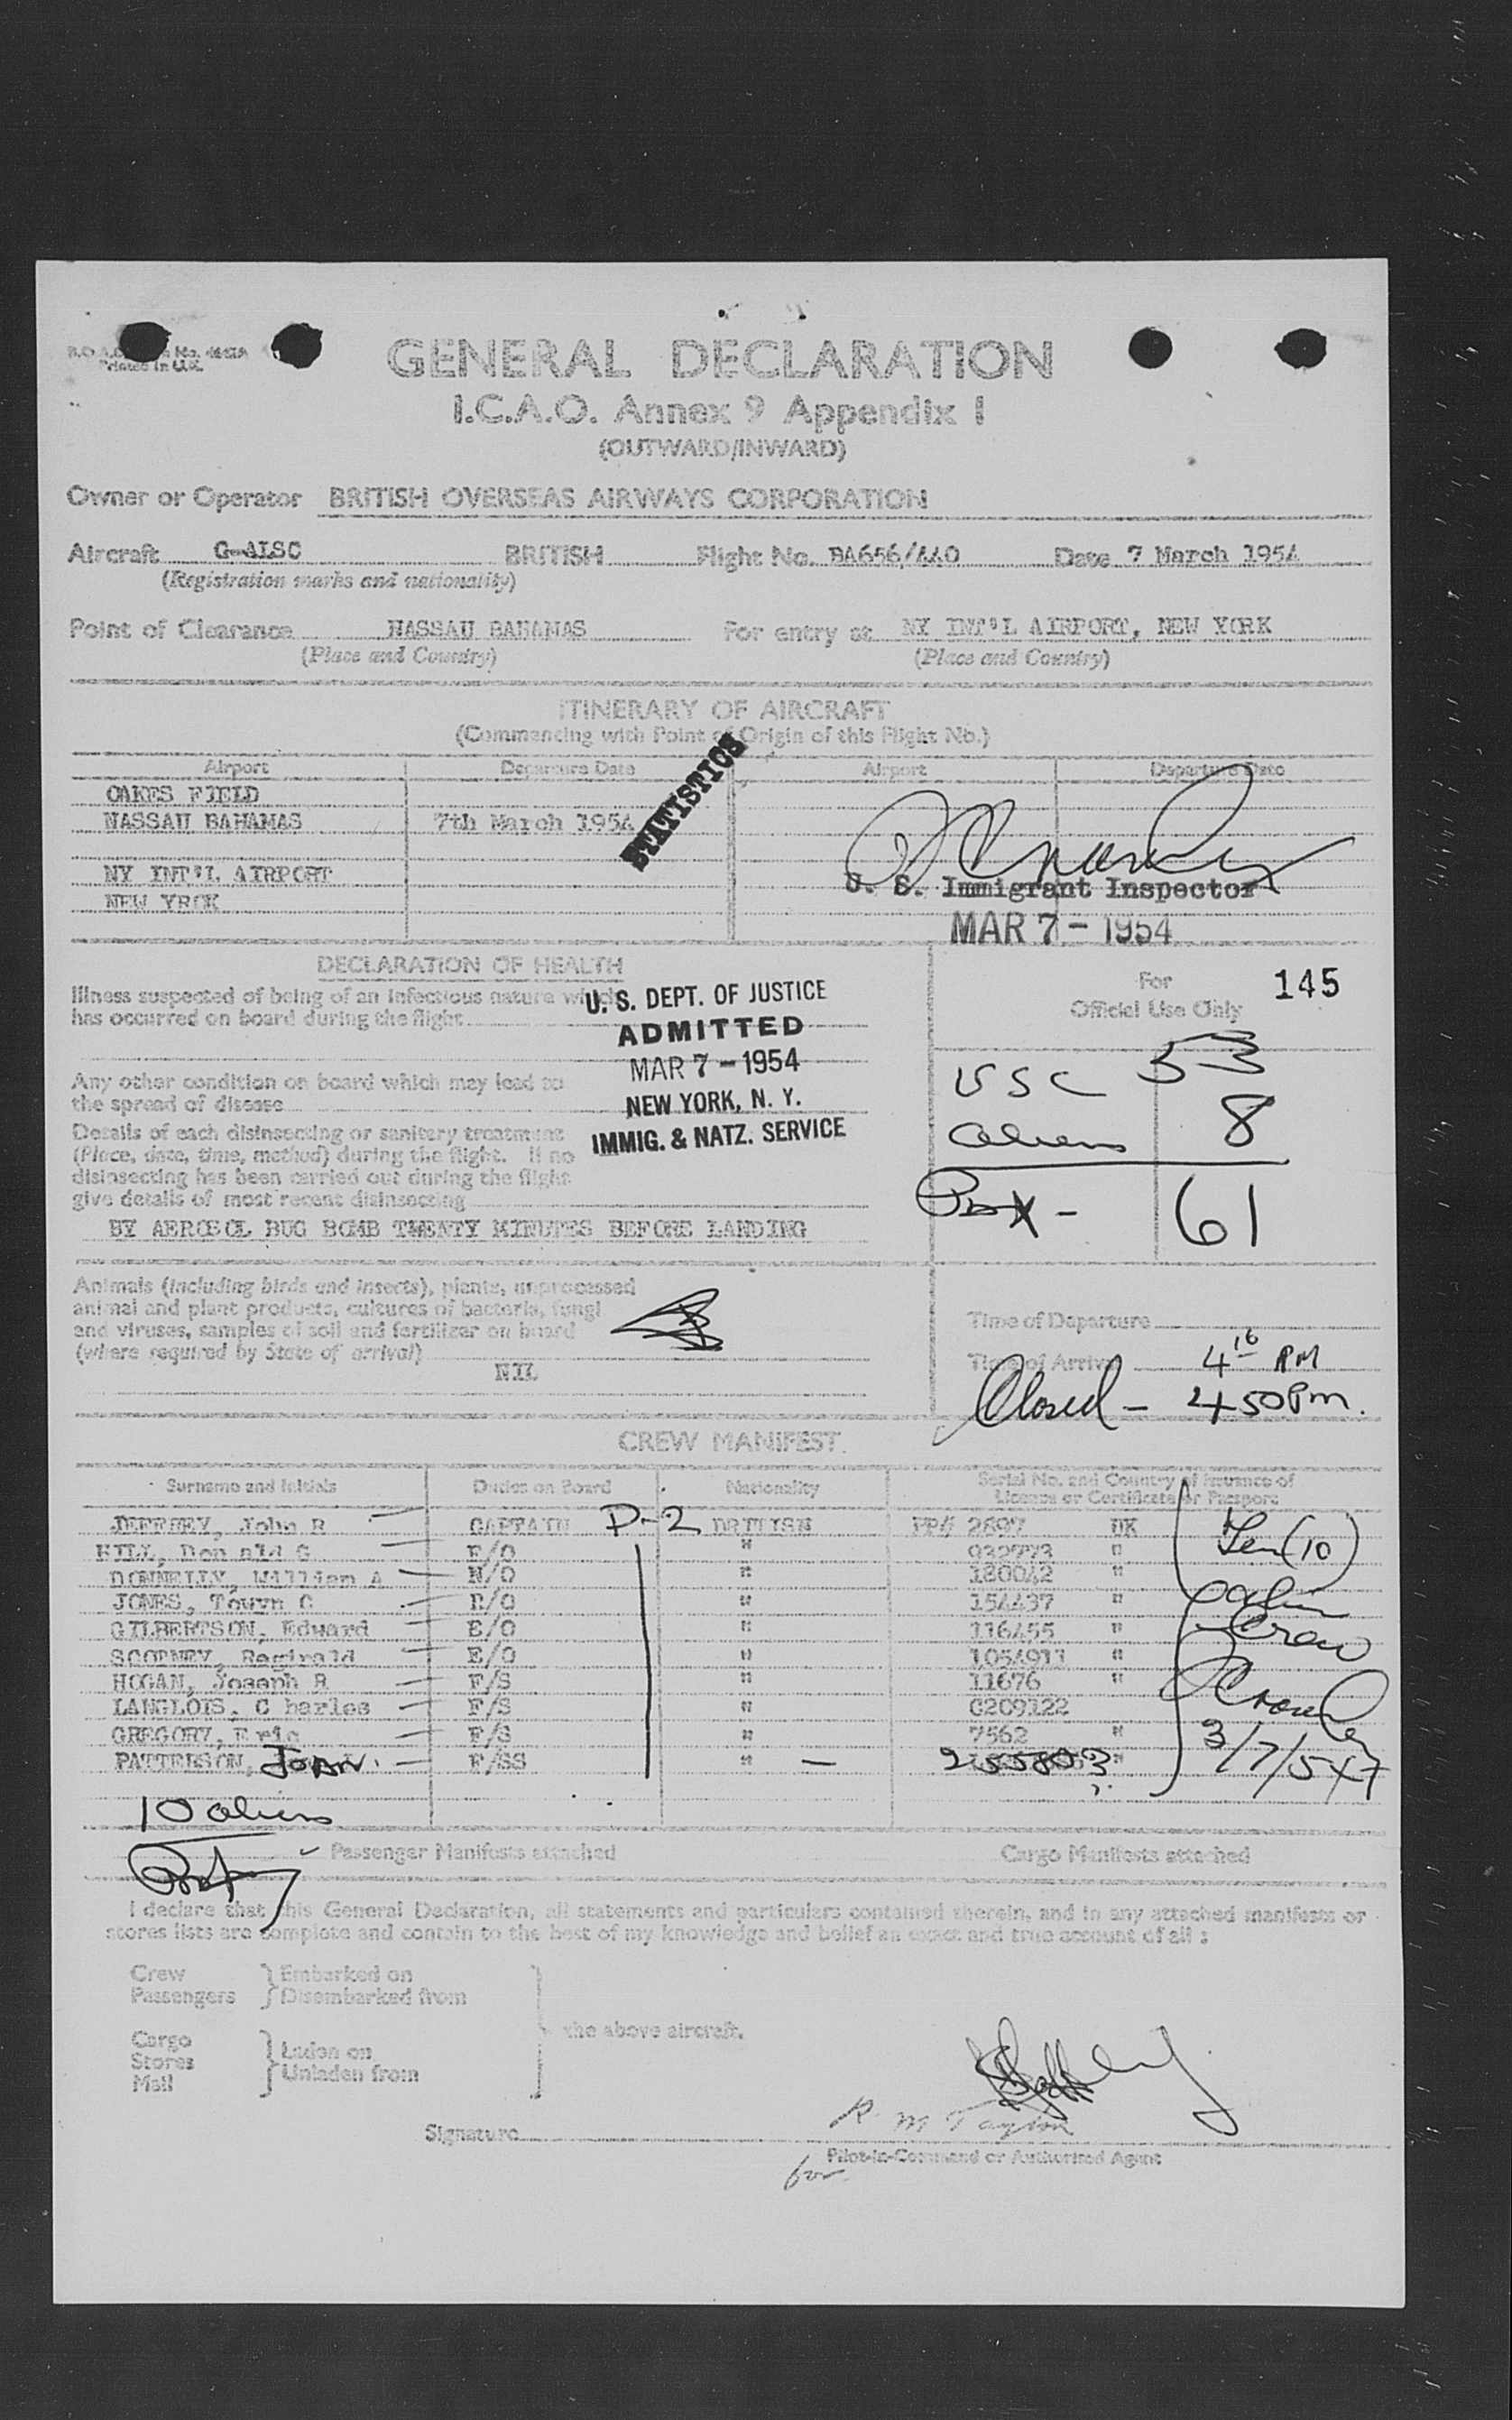 GENERAL DECLARATION
I.C.A.O. Annex 9 Appendix I
(OUTWARD/INWARD)
Owner or Operator BRITISH OVERSEAS AIRWAYS CORPORATION
Aircraft G-ALSC BRITISH Flight No. BA656/440 Date 7 March 1954
(Registration marks and nationality)
Point of Clearance NASSAU BAHAMAS For entry at NY INT'L AIRPORT, NEW YORK
(Place and Country) (Place and Country)
ITINERARY OF AIRCRAFT
(Commencing with Point of Origin of this Flight No.)
Airport Departure Date Airport Departure Date
OAKES FIELD
NASSAU BAHAMAS 7th March 1954
STATISTICS
NY INT'L AIRPORT
NEW YROK
U. S. Immigrant Inspector
MAR 7 - 1954
DECLARATION OF HEALTH
Illness suspected of being of an infectious nature which
has occurred on board during the flight
U. S. DEPT. OF JUSTICE
ADMITTED
MAR 7 - 1954
NEW YORK, N. Y.
IMMIG. & NATZ. SERVICE
For
Official Use Only
145
USC 53
Aliens 8
61
Any other condition on board which may lead to
the spread of disease
Details of each disinsecting or sanitary treatment
(Place, date, time, method) during the flight. If no
disinsecting has been carried out during the flight
give details of most recent disinsecting
BY AEROSOL BUG BOMB TWENTY MINUTES BEFORE LANDING
Animals (including birds and insects), plants, unprocessed
animal and plant products, cultures of bacteria, fungi
and viruses, samples of soil and fertilizer on board
(where required by State of arrival)
NIL
Time of Departure
Time of Arrival 4 16 PM
Closed - 4 50 Pm.
CREW MANIFEST
Surname and Initials Duties on Board Nationality Serial No. and Country of Issuance of
License or Certificate or Passport
JEFFREY, John R CAPTAIN P-2 BRITISH PP# 2897 UK
HILL, Don ald G F/O " 932773 "
DONNELLY, William A N/O " 180042 "
JONES, Towyn C R/O " 154437 "
GILBERTSON, Edward E/O " 116455 "
Reginald E/O " 1054913 "
HOGAN, Joseph R F/S " 11676 "
LANGLOIS, C harles F/S " C209122
GREGORY, E ric F/S " 7562 "
PATTERSON, JOAN. F/SS " 255803 "
Ten (10)
alien
Crew
3/7/54
10 aliens
Passenger Manifests attached Cargo Manifests attached
I declare that this General Declaration, all statements and particulars contained therein, and in any attached manifests or
stores lists are complete and contain to the best of my knowledge and belief an exact and true account of all :
Crew
Passengers
Embarked on
Disembarked from
Cargo
Stores
Mail
Laden on
Unladen from
the above aircraft.
R. M Taylor
Signature
for Pilot-in-Command or Authorized Agent